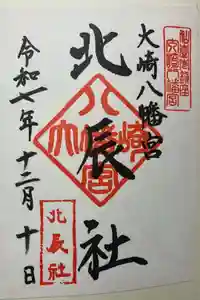 大崎八幡宮
北辰社
令和七年十二月十日
北辰社